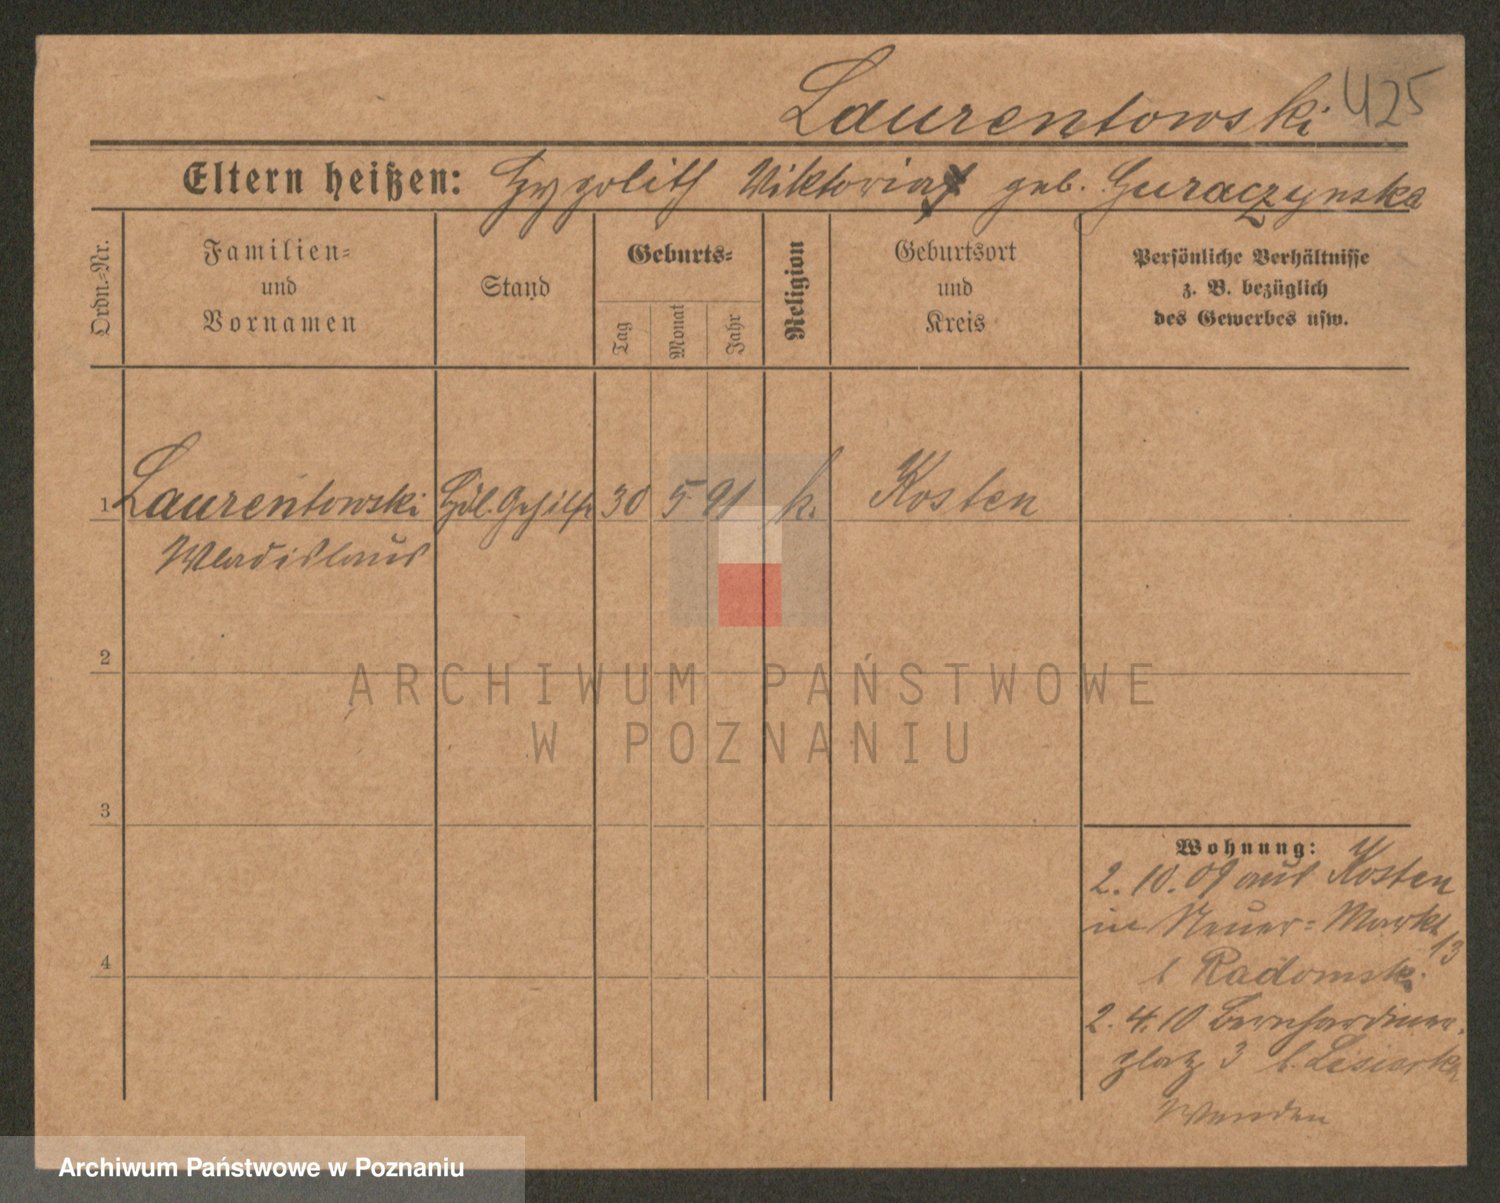 Laurentowski 425
Eltern heißen: Hypolith Viktoria geb. Guraczynska
Ordn.-Nr.
Familien-
und
Vornamen
Stand
Geburts-
Tag
Monat
Jahr
Religion
Geburtsort
und
Kreis
Persönliche Verhältnisse
z. B. bezüglich
des Gewerbes usw.
1 Laurentowski Hdl. Gehilfe 30 5 91 k. Kosten
Wladislaus
2
3
4
Wohnung:
2.10.09 aus Kosten
in Neuer-Markt
13
b Radomsk.
2.4.10 Bernhardiner-
platz 3 b. Lisiorka
ARCHIWUM PAŃSTWOWE
W POZNANIU
Archiwum Państwowe w Poznaniu